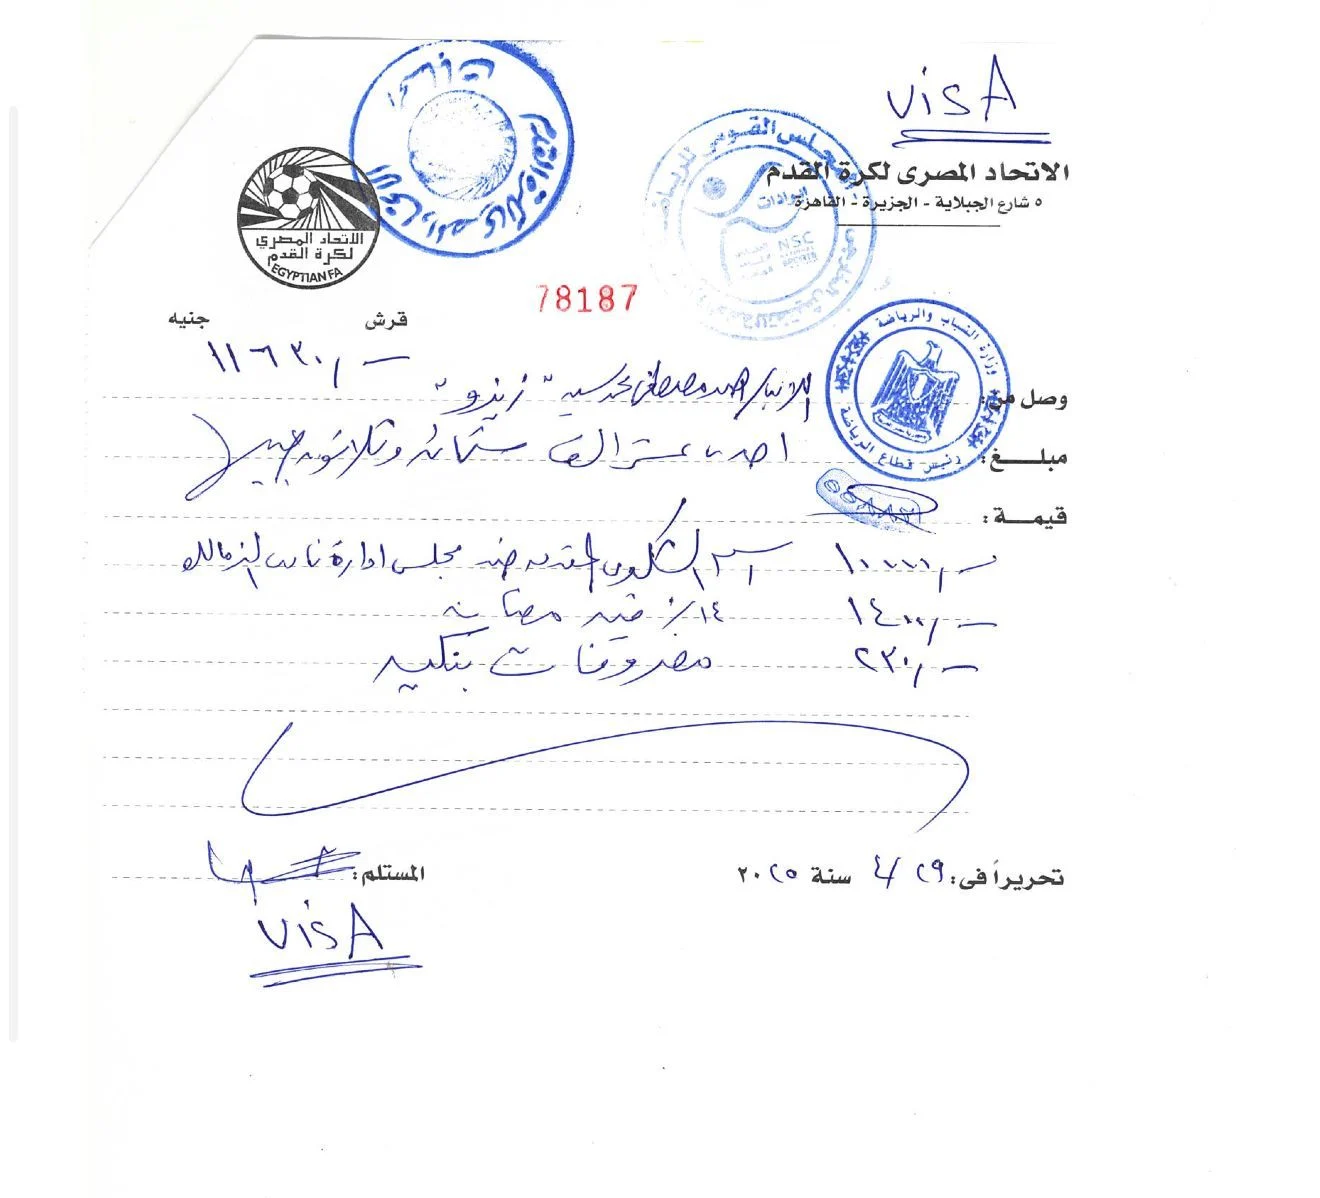 VISA
الاتحاد المصرى لكرة القدم
٥ شارع الجبلاية - الجزيرة - القاهرة
الاتحاد المصري
لكرة القدم
EGYPTIAN FA
المجلس القومي للرياضة
NSC
78187
جنيه قرش
١١٦٣٠,—
وزارة الشباب والرياضة
رئيس قطاع الرياضة
وصل من: احمد مصطفى محمد سيد "زيزو"
مبلـــغ: احدى عشر الف ستمائة وثلاثون جنيه
قيمـــة:
١٠٠٠٠,— الشكوى المقدمه ضد مجلس ادارة نادى الزمالك
١٤٠٠,— ١٤٪ قيمه مضافه
٢٣٠,— مصروفات بنكيه
تحريراً فى: ٢٩/٤ سنة ٢٠٢٥
المستلم:
VISA